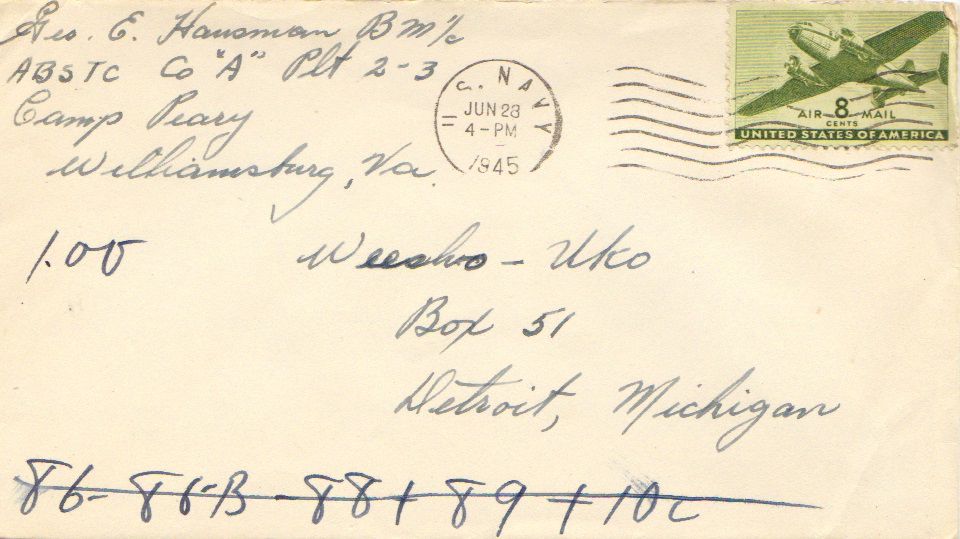 Geo. E. Hausman BM 1/c
ABSTC Co "A" Plt 2-3
Camp Peary
Williamsburg, Va.
S. NAVY
JUN 28
4-PM
1945
AIR 8 MAIL
CENTS
UNITED STATES OF AMERICA
1.00
- Uko
Box 51
Detroit, Michigan
86- 88-B - 88 + 89 + 10c